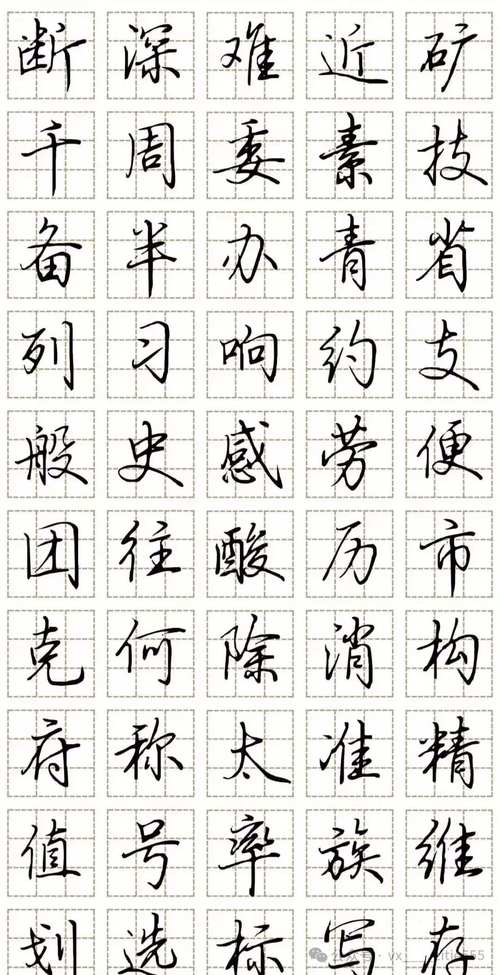 断深难近矿
千周委素技
备半办青省
列习响约支
般史感劳便
团往酸历市
克何除消构
府称太准精
值号率族维
划选标写存
公众号